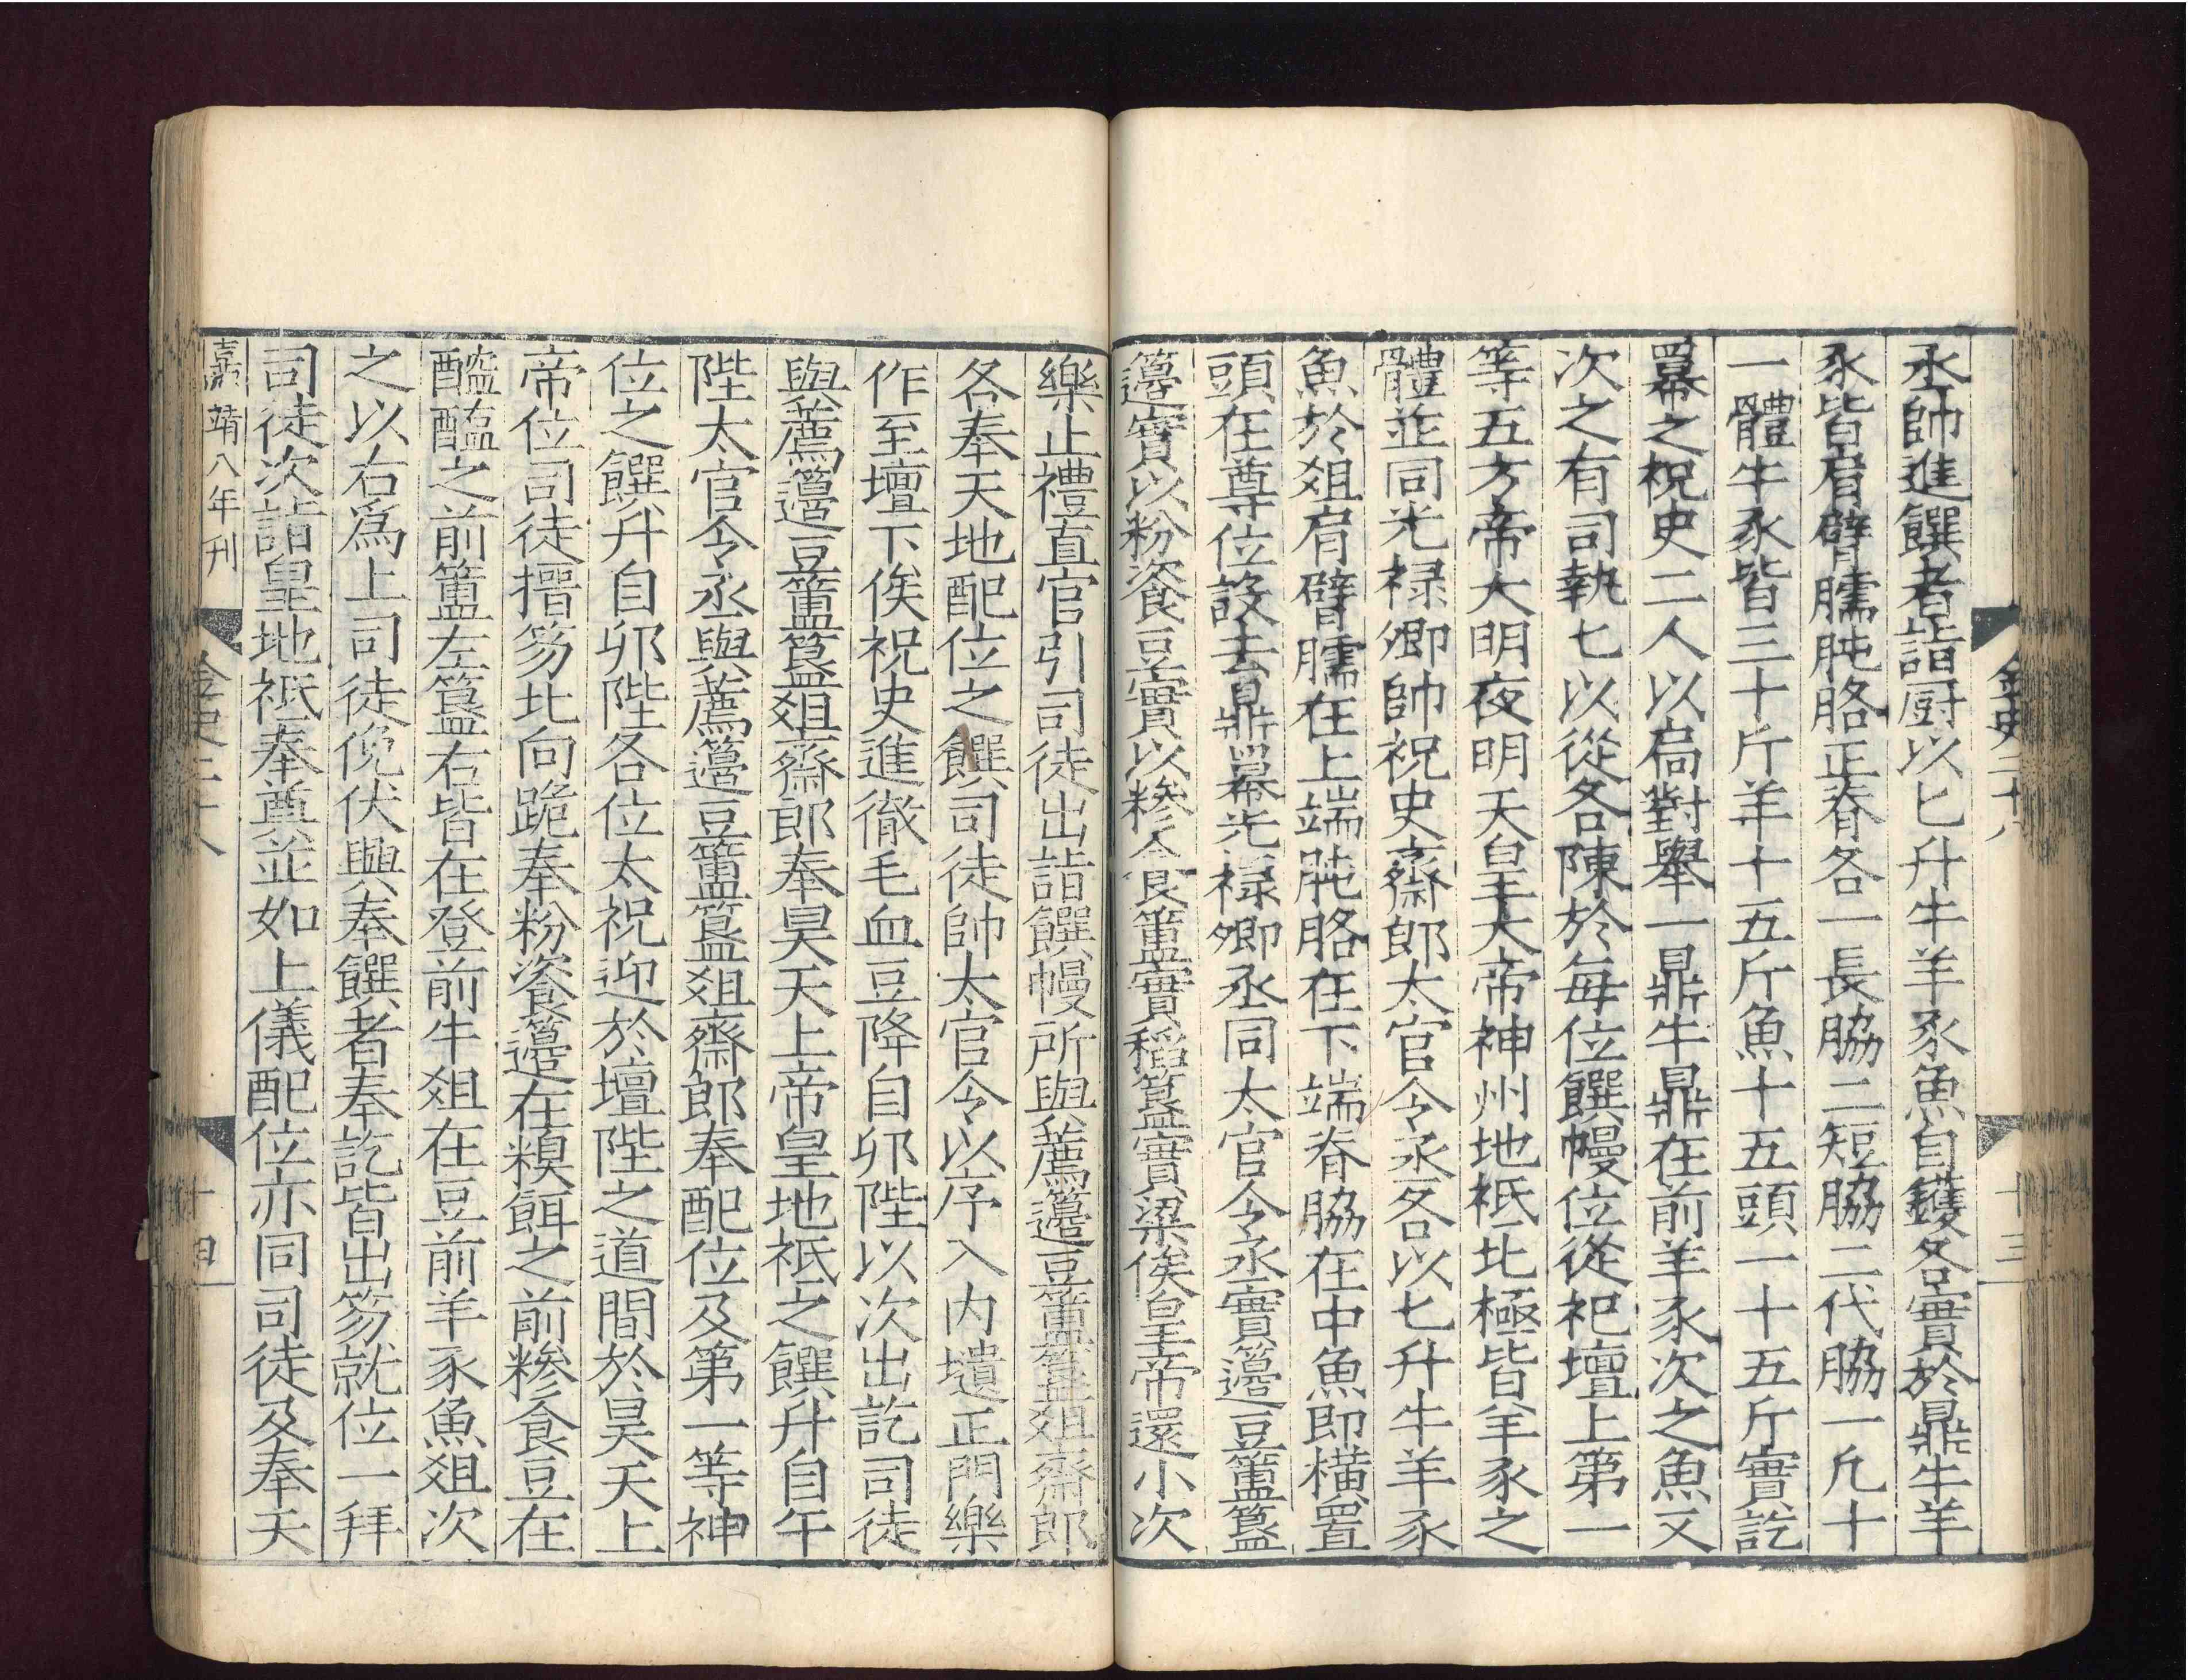 金史二十八
十三
丞帥進饌者詣厨以匕升牛羊豕魚自鑊各實於鼎牛羊
豕皆肩臂臑肫胳正脊各一長脇二短脇二代脇一凡十
一體牛豕皆三十斤羊十五斤魚十五頭一十五斤實訖
羃之祝史二人以扃對舉一鼎牛鼎在前羊豕次之魚又
次之有司執匕以從各陳於每位饌幔位從祀壇上第一
等五方帝大明夜明天皇大帝神州地祇北極皆羊豕之
體並同光祿卿帥祝史齋郎太官令丞各以匕升牛羊豕
魚於爼肩臂臑在上端肫胳在下端脊脇在中魚即橫置
頭在尊位設去鼎羃光祿卿丞同太官令丞實籩豆簠簋
籩實以粉餈豆實以糝食簠實稻簋實粱俟皇帝還小次
樂止禮直官引司徒出詣饌幔所與薦籩豆簠簋爼齋郎
各奉天地配位之饌司徒帥太官令以序入內壝正門樂
作至壇下俟祝史進徹毛血豆降自卯陛以次出訖司徒
與薦籩豆簠簋爼齋郎奉昊天上帝皇地祇之饌升自午
陛太官令丞與薦籩豆簠簋爼齋郎奉配位及第一等神
位之饌升自卯陛各位太祝迎於壇陛之道間於昊天上
帝位司徒搢笏北向跪奉粉餈籩在糗餌之前糝食豆在
醓醢之前簠左簋右皆在登前牛爼在豆前羊豕魚爼次
之以右爲上司徒俛伏興奉饌者奉訖皆出笏就位一拜
司徒次詣皇地祇奉奠並如上儀配位亦同司徒及奉天
嘉靖八年刊
金史二十八
十四